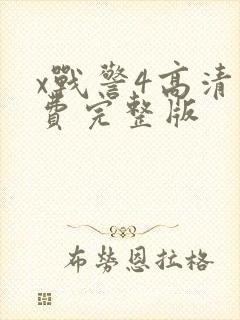 x戰警4高清
費完整版
布勞恩拉格